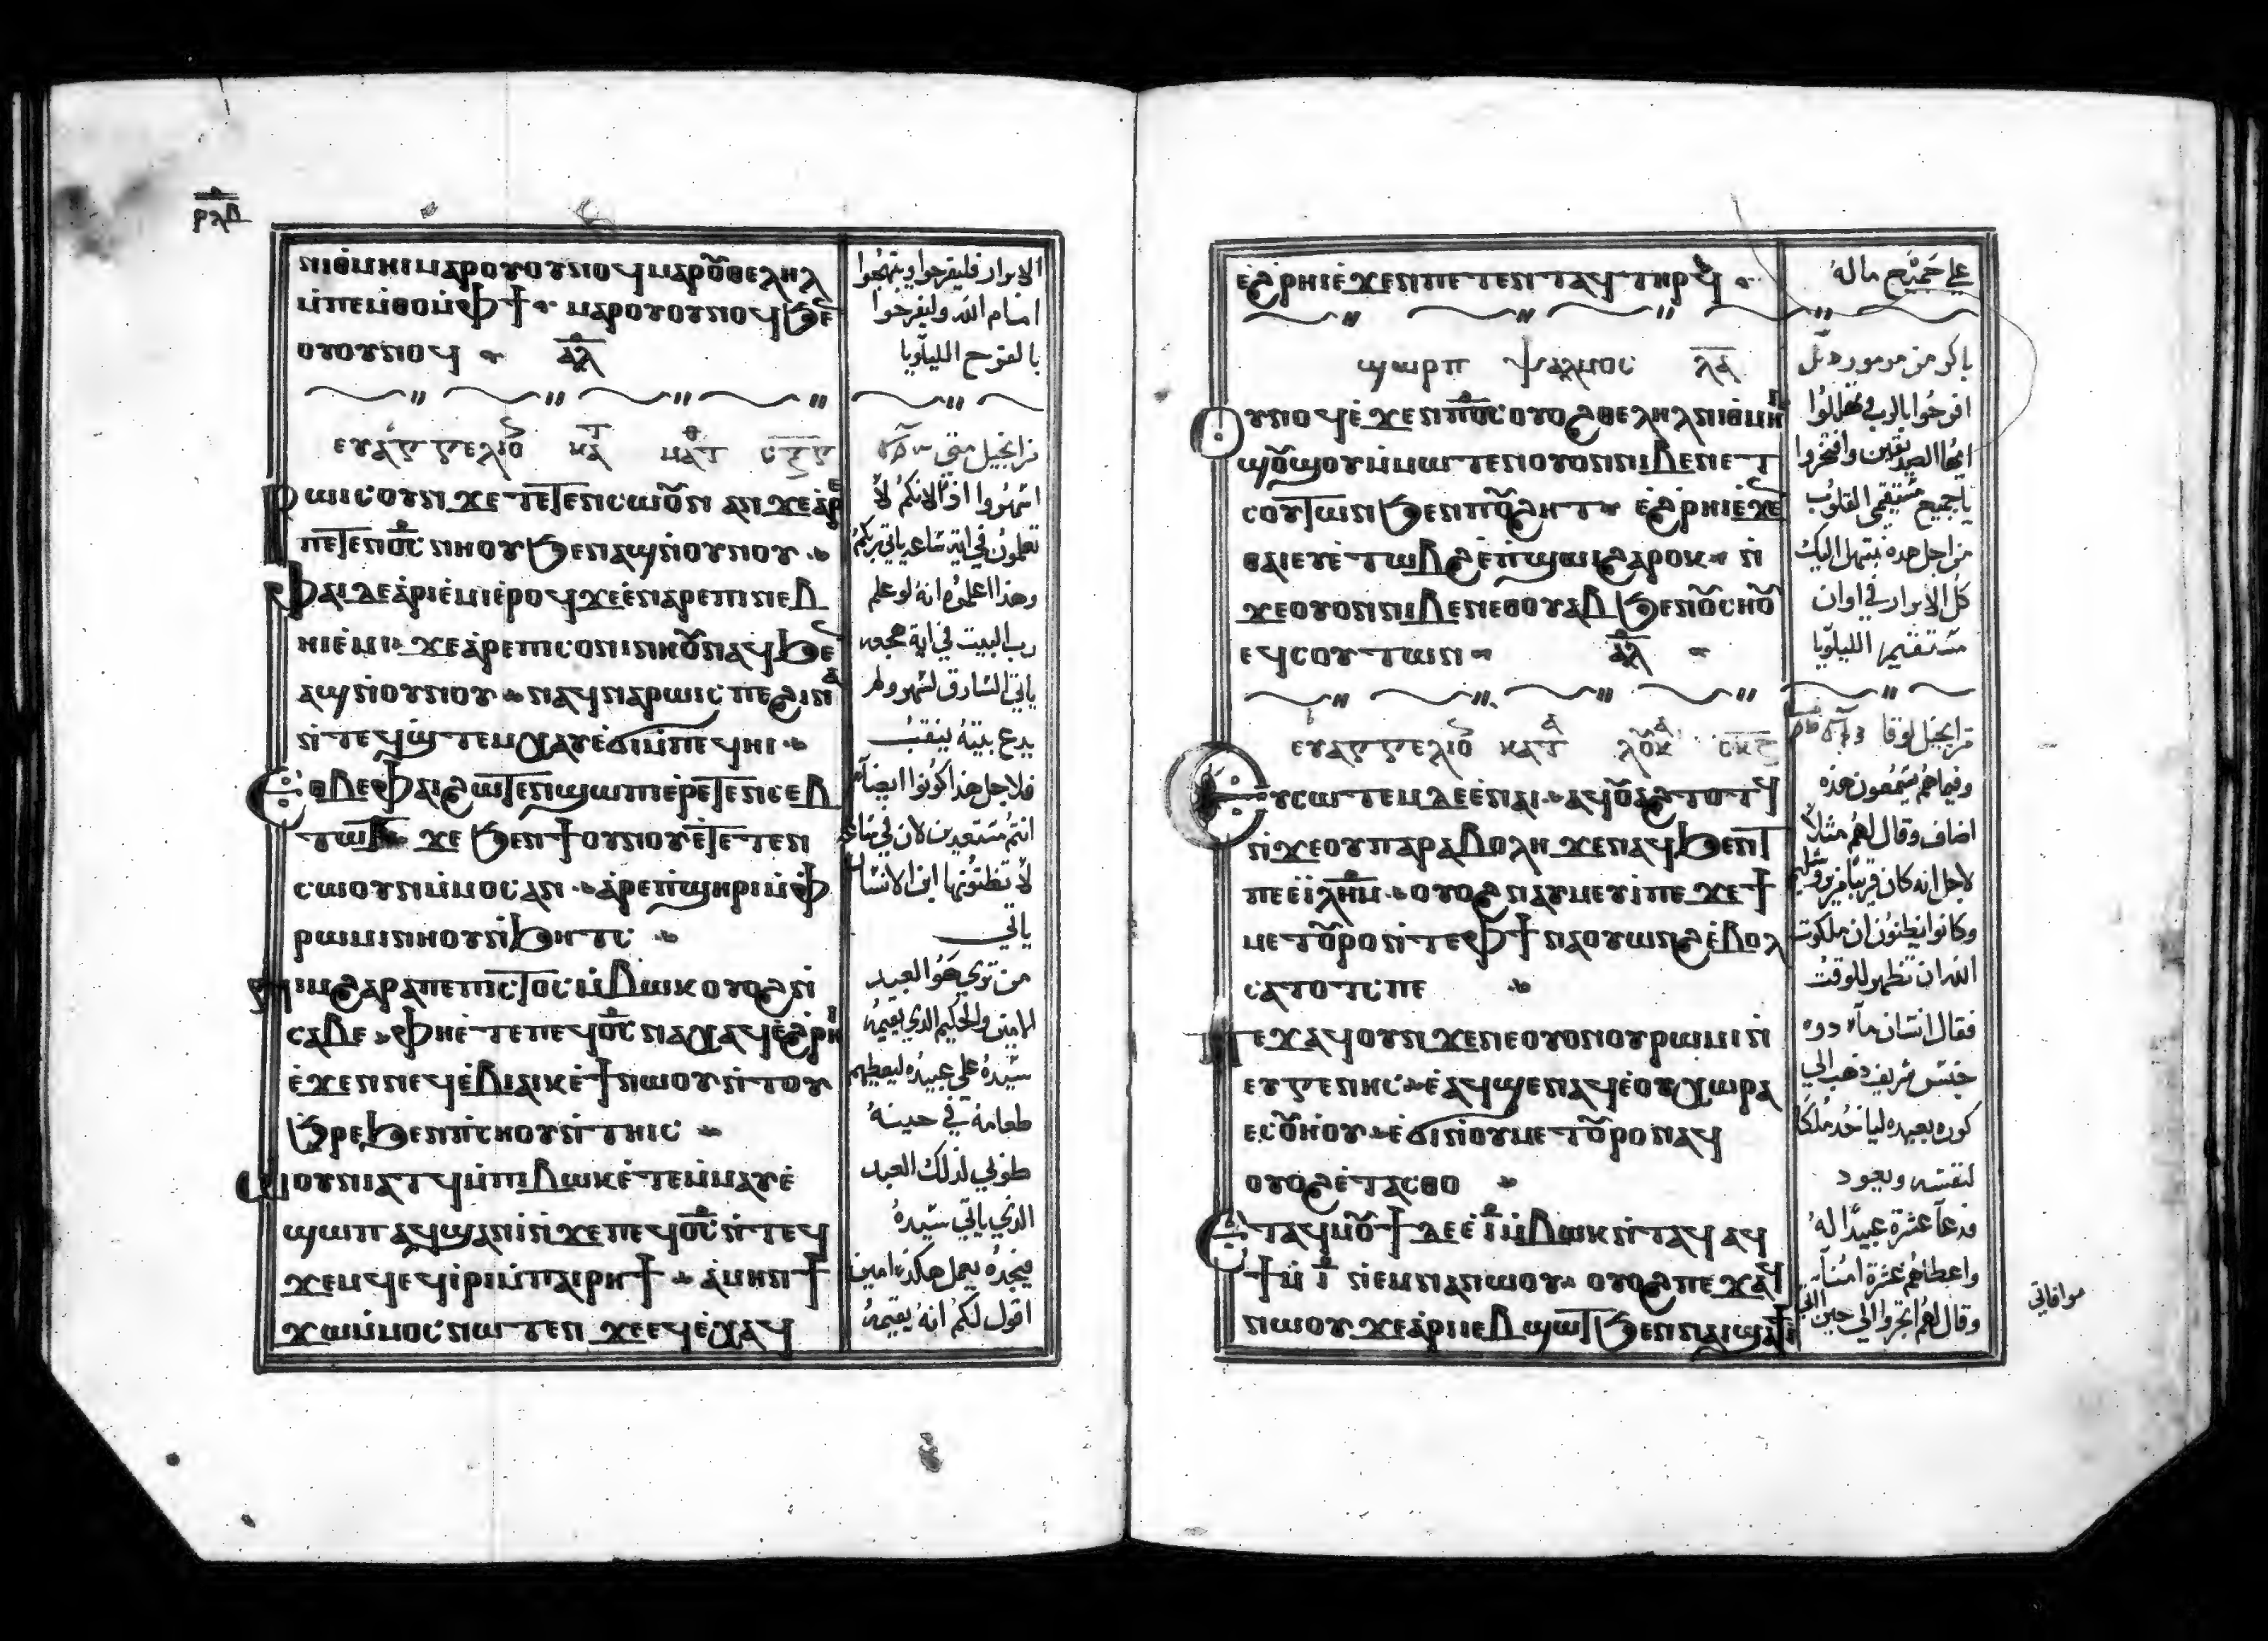 ⲣⲗⲃ
ⲛⲓⲑⲙⲏⲓ ⲙⲁⲣⲟⲩⲟⲩⲛⲟϥ ⲙⲁⲣⲟⲩⲑⲉⲗⲏⲗ
ⲙ̇ⲡⲉⲙ̇ⲑⲟⲙ̇ⲫϯ ⲙⲁⲣⲟⲩⲟⲩⲛⲟϥ ϧⲉⲛ
ⲟⲩⲟⲩⲛⲟϥ ⲁⲗ
ⲉⲩⲁⲅⲅⲉⲗⲓⲟⲛ ⲕⲁⲧ ⲙⲁⲧⲑ
ⲣⲱⲓⲥ ⲟⲩⲛ ϫⲉ ⲧⲉⲧⲉⲛⲥⲱⲟⲩⲛ ⲁⲛ ϫⲉ ⲁ̇ⲣⲉ
ⲡⲉⲧⲉⲛⲟ̅ⲥ̅ ⲛⲏⲟⲩ ϧⲉⲛ ⲁϣ ⲛ̇ⲟⲩⲛⲟⲩ
ⲫⲁⲓ ⲇⲉ ⲁ̇ⲣⲓⲉ̇ⲙⲓ ⲉ̇ⲣⲟϥ ϫⲉ ⲉ̇ⲛⲁⲣⲉ ⲡⲓⲛⲉⲃ
ⲏⲓ ⲉ̇ⲙⲓ ϫⲉ ⲁ̇ⲣⲉ ⲡⲓⲥⲟⲛⲓ ⲛⲏⲟⲩ ⲛⲁϥ ϧⲉⲛ
ⲁϣ ⲛ̇ⲟⲩⲛⲟⲩ ⲛⲁϥⲛⲁⲣⲱⲓⲥ ⲡⲉ ϩⲓⲛⲁ
ⲛ̇ⲧⲉϥϣⲧⲉⲙⲭⲁⲩ ⲉ̇ϭⲓ ⲙ̇ⲡⲉϥⲏⲓ
ⲉⲑⲃⲉⲫⲁⲓ ϩⲱⲧⲉⲛ ϣⲱⲡⲓ ⲉ̇ⲣⲉⲧⲉⲛⲥⲉⲃ
ⲧⲱⲧ ϫⲉ ϧⲉⲛ ϯⲟⲩⲛⲟⲩ ⲉ̇ⲧⲉⲧⲉⲛ
ⲥⲱⲟⲩⲛ ⲙ̇ⲙⲟⲥ ⲁⲛ ⲁ̇ⲣⲉ ⲡ̇ϣⲏⲣⲓ ⲙ̇ⲫ
ⲣⲱⲙⲓ ⲛⲏⲟⲩ ⲛ̇ϧⲏⲧⲥ
ⲛⲓⲙ ϩⲁⲣⲁ ⲡⲉ ⲡⲓⲡⲓⲥⲧⲟⲥ ⲙ̇ⲃⲱⲕ ⲟⲩⲟϩ ⲛ̇
ⲥⲁⲃⲉ ⲫⲏⲉ̇ⲧⲉ ⲡⲉϥⲟ̅ⲥ̅ ⲛⲁⲭⲁϥ ⲉ̇ϩⲣⲏⲓ
ⲉ̇ϫⲉⲛ ⲛⲉϥⲉ̇ⲃⲓⲁⲓⲕ ⲉ̇ϯ ⲛⲱⲟⲩ ⲛ̇ⲧⲟⲩ
ϧⲣⲉ ϧⲉⲛ ⲡ̇ⲥⲏⲟⲩ ⲛ̇ⲧⲏⲓⲥ
ⲱⲟⲩⲛⲓⲁⲧϥ ⲙ̇ⲡⲓⲃⲱⲕ ⲉ̇ⲧⲉⲙ̇ⲙⲁⲩ ⲉ̇
ϣⲱⲡ ⲁϥϣⲁⲛⲓ̇ ⲛ̇ϫⲉ ⲡⲉϥⲟ̅ⲥ̅ ⲛ̇ⲧⲉϥ
ϫⲉⲙϥ ⲉϥⲓ̇ⲣⲓ ⲙ̇ⲡⲁⲓⲣⲏϯ ⲁ̇ⲙⲏⲛ ϯ
ϫⲱ ⲙ̇ⲙⲟⲥ ⲛⲱⲧⲉⲛ ϫⲉ ⲉϥⲉ̇ⲭⲁϥ
الابرار فليفرحوا ويتهجوا
امام الله وليفرحوا
بالفرح الليلويا
من انجيل متي
اسهروا اذًا لانكم لا
تعلمون في اية ساعه ياتي ربكم
وهذا اعلموه انه لو علم
رب البيت في اية هجعه
ياتي السارق لسهر ولم
يدع بيته ينقب
فلاجل هذا كونوا ايضا
انتم مستعدين لان في ساعه
لا تظنونها ابن الانسان
ياتي
من تري هو العبد
الامين والحكيم الذي يقيمه
سيده علي عبيده ليعطيهم
طعامه في حينه
طوبي لذلك العبد
الذي ياتي سيده
فيجده يعمل هكذا امين
اقول لكم انه يقيمه
ⲉ̇ϩⲣⲏⲓ ⲉ̇ϫⲉⲛ ⲡⲉⲧⲉⲛⲧⲁϥ ⲧⲏⲣϥ
ϣⲱⲣⲡ ⲯⲁⲗⲙⲟⲥ ⲗⲁ
ⲟⲩⲛⲟϥ ⲉ̇ϫⲉⲛ ⲡⲟ̅ⲥ̅ ⲟⲩⲟϩ ⲑⲉⲗⲏⲗ ⲛⲓⲑⲙⲏⲓ
ϣⲟⲩϣⲟⲩ ⲙ̇ⲙⲱⲧⲉⲛ ⲟⲩⲟⲛ ⲛⲓⲃⲉⲛ ⲉⲧ
ⲥⲟⲩⲧⲱⲛ ϧⲉⲛ ⲡⲟⲩϩⲏⲧ ⲉ̇ϩⲣⲏⲓ ⲉ̇ϫⲉⲛ
ⲑⲁⲓ ⲉⲩⲉ̇ⲧⲱⲃϩ ⲉ̇ⲡ̇ϣⲱⲓ ϩⲁⲣⲟⲕ ⲛ̇
ϫⲉ ⲟⲩⲟⲛ ⲛⲓⲃⲉⲛ ⲉⲑⲟⲩⲁⲃ ϧⲉⲛ ⲟⲩⲥⲏⲟⲩ
ⲉϥⲥⲟⲩⲧⲱⲛ ⲁⲗ
ⲉⲩⲁⲅⲅⲉⲗⲓⲟⲛ ⲕⲁⲧⲁ ⲗⲟⲩⲕⲁ
ⲉⲩⲥⲱⲧⲉⲙ ⲇⲉ ⲉ̇ⲛⲁⲓ ⲁϥⲟⲩⲁϩⲧⲟⲧϥ
ⲛ̇ϫⲉ ⲟⲩⲡⲁⲣⲁⲃⲟⲗⲏ ϫⲉ ⲛⲁϥϧⲉⲛⲧ
ⲡⲉ ⲉ̇ⲓ̈ⲗⲏⲙ ⲟⲩⲟϩ ⲛⲁⲩⲙⲉⲩⲓ̇ ⲡⲉ ϫⲉ ϯ
ⲙⲉⲧⲟⲩⲣⲟ ⲛ̇ⲧⲉ ⲫϯ ⲛⲁⲟⲩⲱⲛϩ ⲉ̇ⲃⲟⲗ
ⲥⲁⲧⲟⲧⲥ ⲡⲉ
ⲡⲉϫⲁϥ ⲟⲩⲛ ϫⲉ ⲛⲉ ⲟⲩⲟⲛ ⲟⲩⲣⲱⲙⲓ ⲛ̇
ⲉⲩⲅⲉⲛⲏⲥ ⲉ̇ⲁϥϣⲉⲛⲁϥ ⲉ̇ⲟⲩⲭⲱⲣⲁ
ⲉⲥⲟⲩⲏ̇ⲟⲩ ⲉ̇ϭⲓ ⲛ̇ⲟⲩⲙⲉⲧⲟⲩⲣⲟ ⲛⲁϥ
ⲟⲩⲟϩ ⲉ̇ⲧⲁⲥⲑⲟ
ⲉⲧⲁϥⲙⲟⲩϯ ⲇⲉ ⲉ̇ⲓ̅ ⲙ̇ⲃⲱⲕ ⲛ̇ⲧⲁϥ ⲁϥ
ϯ ⲙ̇ⲓ̅ ⲛ̇ⲉⲙⲛⲁ ⲛⲱⲟⲩ ⲟⲩⲟϩ ⲡⲉϫⲁϥ
ⲛⲱⲟⲩ ϫⲉ ⲁ̇ⲣⲓⲓⲉⲃϣⲱⲧ ϧⲉⲛ ⲛⲁⲓ ϣⲁϯⲓ̇
علي جميع ماله
باكر من مزمور
افرحوا بالرب تهللوا
ايها الصديقين وافتخروا
يا جميع مستقيمي القلوب
من اجل هذه يبتهل اليك
كل الابرار في اوان
مستقيم الليلويا
من انجيل لوقا
وفيما هم يسمعون هذه
اضاف وقال لهم مثلا
لاجل انه كان قريبا من يروشليم
وكانوا يظنون ان ملكوت
الله ان تظهر للوقت
فقال انسان ما ذو
جنس شريف ذهب الي
كوره بعيده لياخذ ملكا
لنفسه ويعود
فدعا عشرة عبيدا له
واعطاهم عشرة امنا
وقال لهم اتجروا الي حين
موافاتي